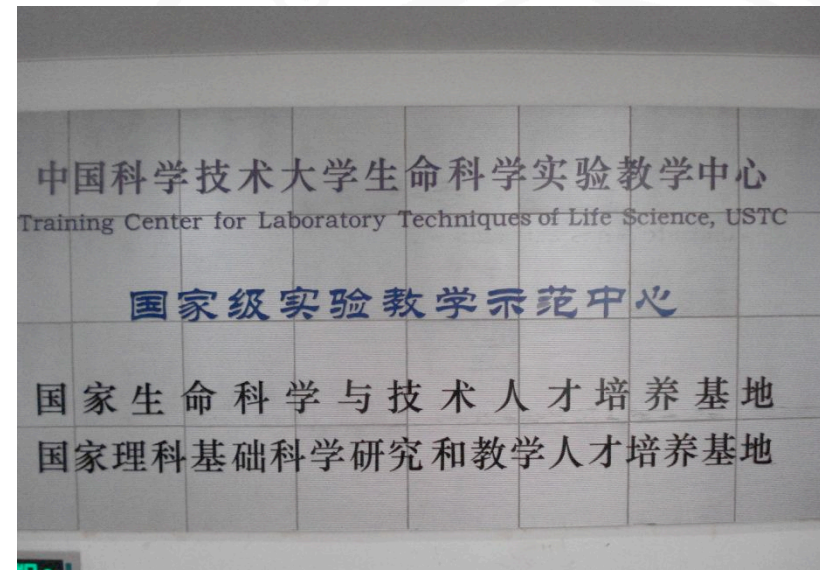 中国科学技术大学生命科学实验教学中心
Training Center for Laboratory Techniques of Life Science, USTC
国家级实验教学示范中心
国家生命科学与技术人才培养基地
国家理科基础科学研究和教学人才培养基地